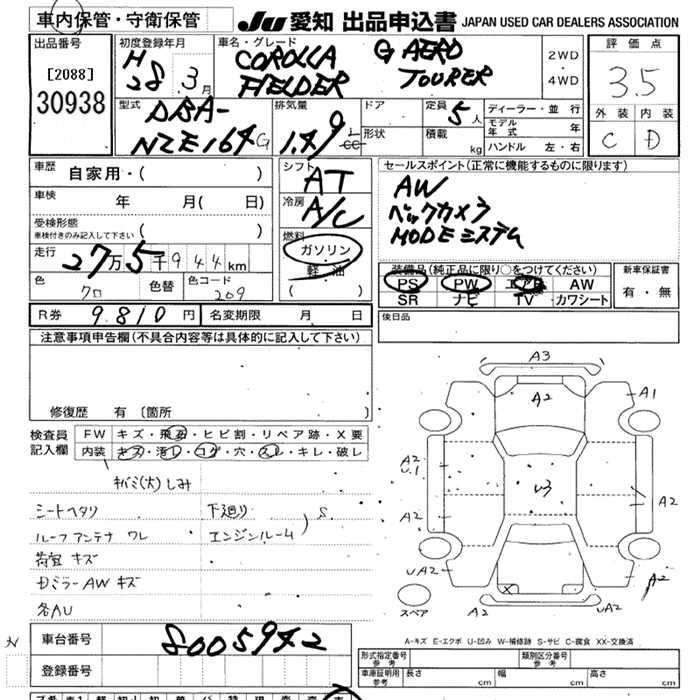 車内保管・守衛保管
JU 愛知 出品申込書 JAPAN USED CAR DEALERS ASSOCIATION
出品番号
[2088]
30938
初度登録年月
H28年3月
車名・グレード
COROLLA G AERO
FIELDER TOURER
2WD
4WD
評価点
3.5
外装 内装
C D
型式
DBA-
NZE164G
排気量
1.49 L
cc
ドア
形状
定員 5人
積載 kg
ディーラー・並行
モデル年式 年
ハンドル 左・右
車歴 自家用・( )
車検 年 月( 日)
受検形態
車検付きのみ記入して下さい ( )
走行 27万5千944km
色 クロ 色替 色コード 209
シフト
AT
冷房
A/C
燃料
ガソリン
軽・油
( )
セールスポイント(正常に機能するものに限ります)
AW
バックカメラ
装備品(純正品に限り○をつけてください)
PS PW エアB AW
SR ナビ TV カワシート
新車保証書
有・無
R券 9810円 名変期限 月 日
後日品
注意事項申告欄(不具合内容等は具体的に記入して下さい)
修復歴 有 〔箇所
検査員
記入欄
FW キズ・飛石・ヒビ割・リペア跡・X要
内装 キズ・汚レ・コゲ・穴・スレ・キレ・破レ
キバミ(大)しみ
シートヘタリ 下廻り
ルーフアンテナ ワレ エンジンルーム S
荷室 キズ
Dミラー AW キズ
各AU
A3
A2
A1
A2
U.1
U3
A2
A2
UA2
A2
X
A2
UA2
スペア
A-キズ E-エクボ U-凹み W-補修跡 S-サビ C-腐食 XX-交換済
車台番号 8005942
登録番号
形式指定番号
参考
類別区分番号
参考
車庫証明用
参考
長さ cm 幅 cm 高さ cm